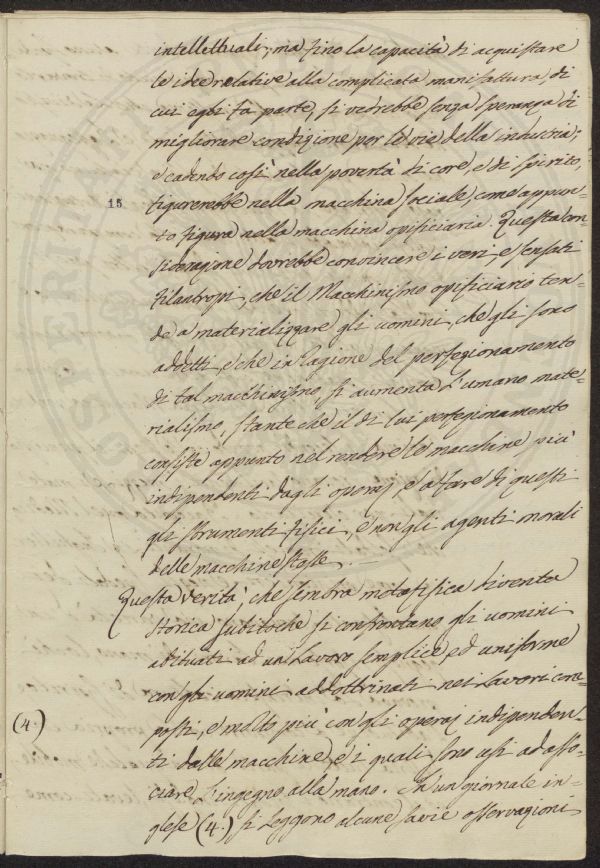 intellettuali; ma fino la capacità di acquistare
le idee relative alla complicata manifattura, di
cui egli fa parte, si vedrebbe senza speranza di
migliorare condizione per le vie della industria;
e cadendo così nella povertà di core, e di spirito,
figurerebbe nella macchina sociale, come appun-
15
to figura nella macchina opificiaria. Questa con-
siderazione dovrebbe convincere i veri, e sensati
filantropi, che il Macchinismo opificiario ten-
de a materializzare gli uomini, che gli sono
addetti, e che in ragione del perfezionamento
di tal macchinismo, si aumenta l'umano mate-
rialismo, stante che il di lui perfezionamento
consiste appunto nel rendere le macchine più
indipendenti dagli operaj, e a fare di questi
gli strumenti fisici, e non gli agenti morali
delle macchine stesse. —
Questa verità, che sembra metafisica diventa
storica subitoche si confrontano gli uomini
abituati ad un lavoro semplice, ed uniforme
con gli uomini addottrinati nei lavori com-
(4.)
posti, e molto più con gli operaj indipenden-
ti dalle macchine, e i quali sono usi ad asso-
ciare l'ingegno alla mano. In un giornale in-
glese (4.) si leggono alcune savie osservazioni